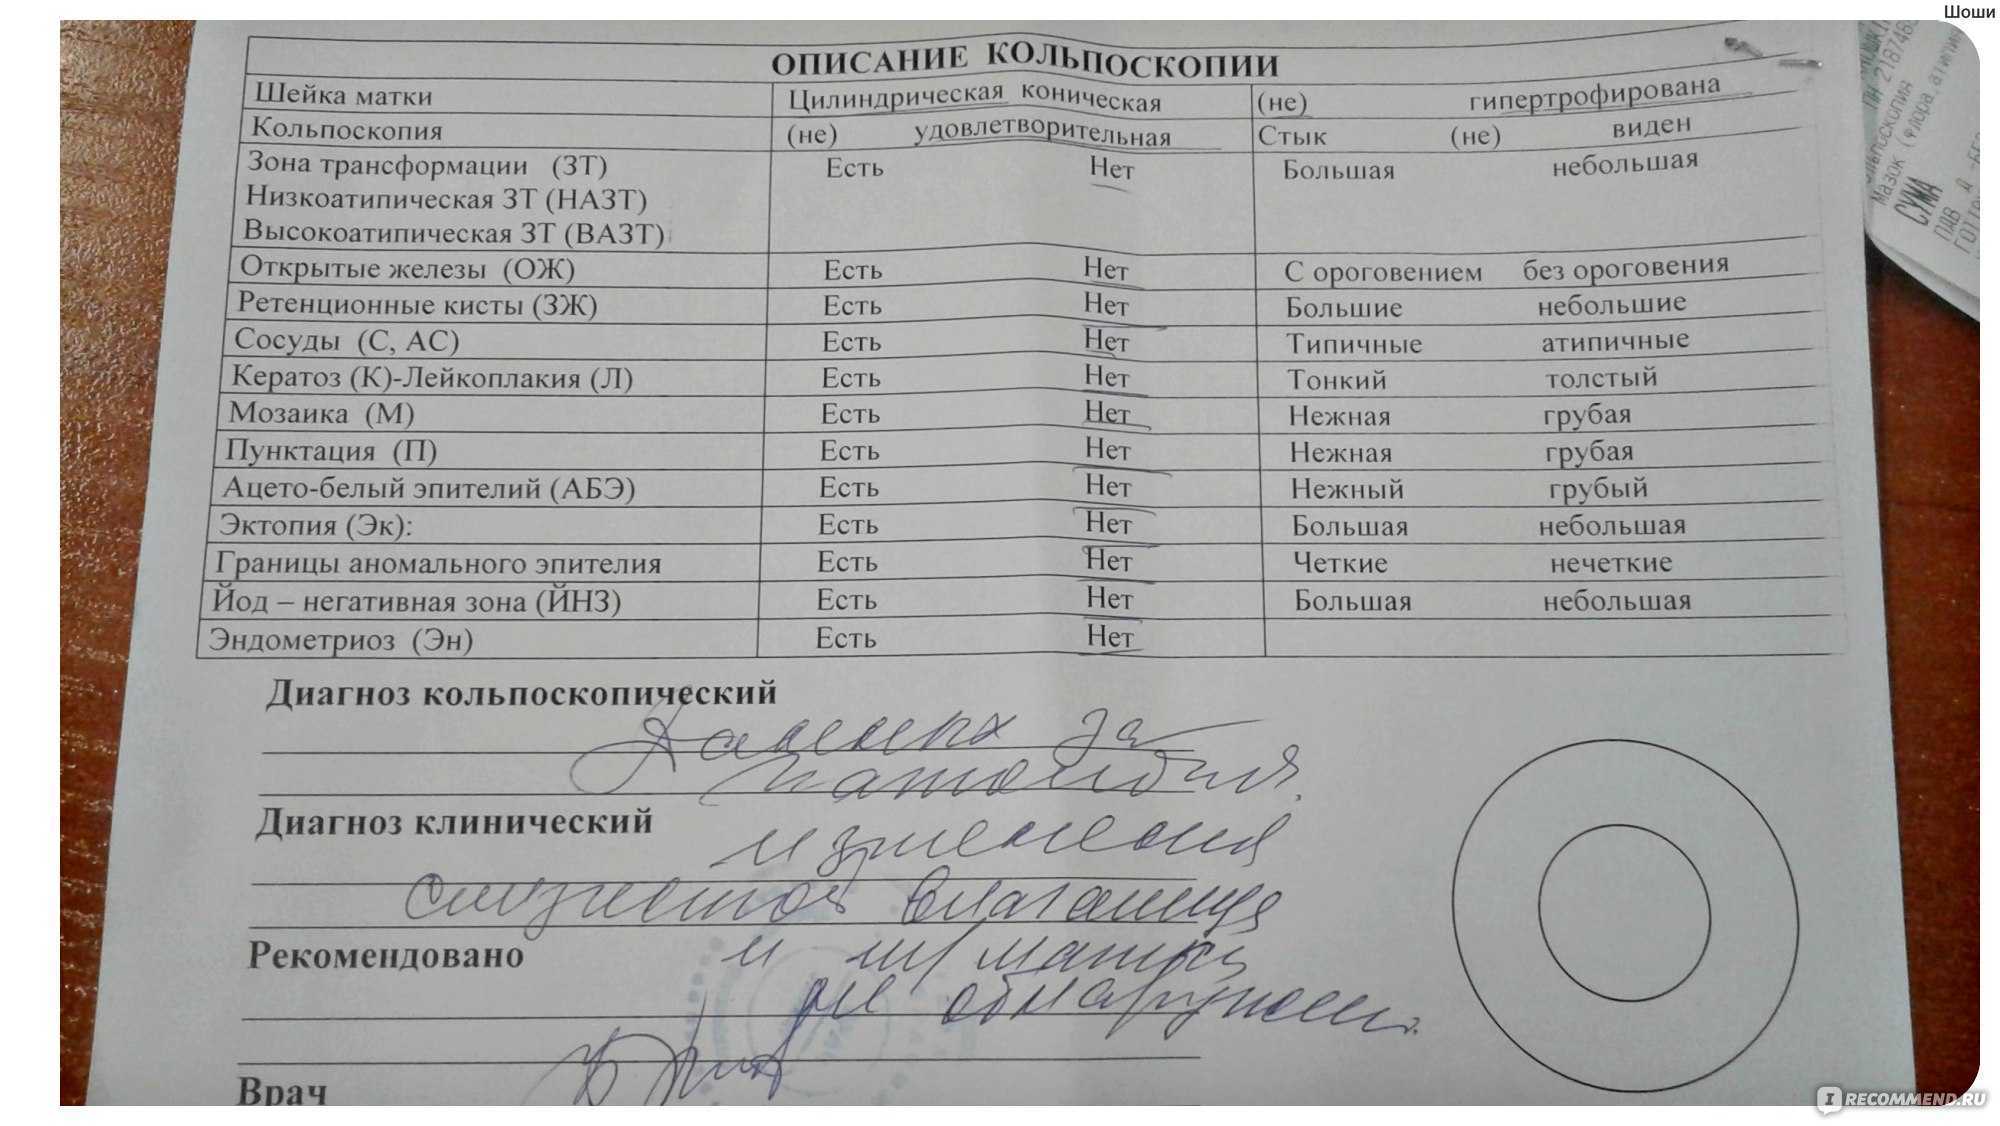 Шоши
ОПИСАНИЕ КОЛЬПОСКОПИИ
Шейка матки Цилиндрическая коническая (не) гипертрофирована
Кольпоскопия (не) удовлетворительная Стык (не) виден
Зона трансформации (ЗТ) Есть Нет Большая небольшая
Низкоатипическая ЗТ (НАЗТ)
Высокоатипическая ЗТ (ВАЗТ)
Открытые железы (ОЖ) Есть Нет С ороговением без ороговения
Ретенционные кисты (ЗЖ) Есть Нет Большие небольшие
Сосуды (С, АС) Есть Нет Типичные атипичные
Кератоз (К)-Лейкоплакия (Л) Есть Нет Тонкий толстый
Мозаика (М) Есть Нет Нежная грубая
Пунктация (П) Есть Нет Нежная грубая
Ацето-белый эпителий (АБЭ) Есть Нет Нежный грубый
Эктопия (Эк): Есть Нет Большая небольшая
Границы аномального эпителия Есть Нет Четкие нечеткие
Йод – негативная зона (ЙНЗ) Есть Нет Большая небольшая
Эндометриоз (Эн) Есть Нет
Диагноз кольпоскопический
Данных за
Диагноз клинический
изменения
слизистой влагалища
Рекомендовано
и ш/матки
не обнаружен.
Врач
Мазок (флора, атипия
СУМА
IRECOMMEND.RU